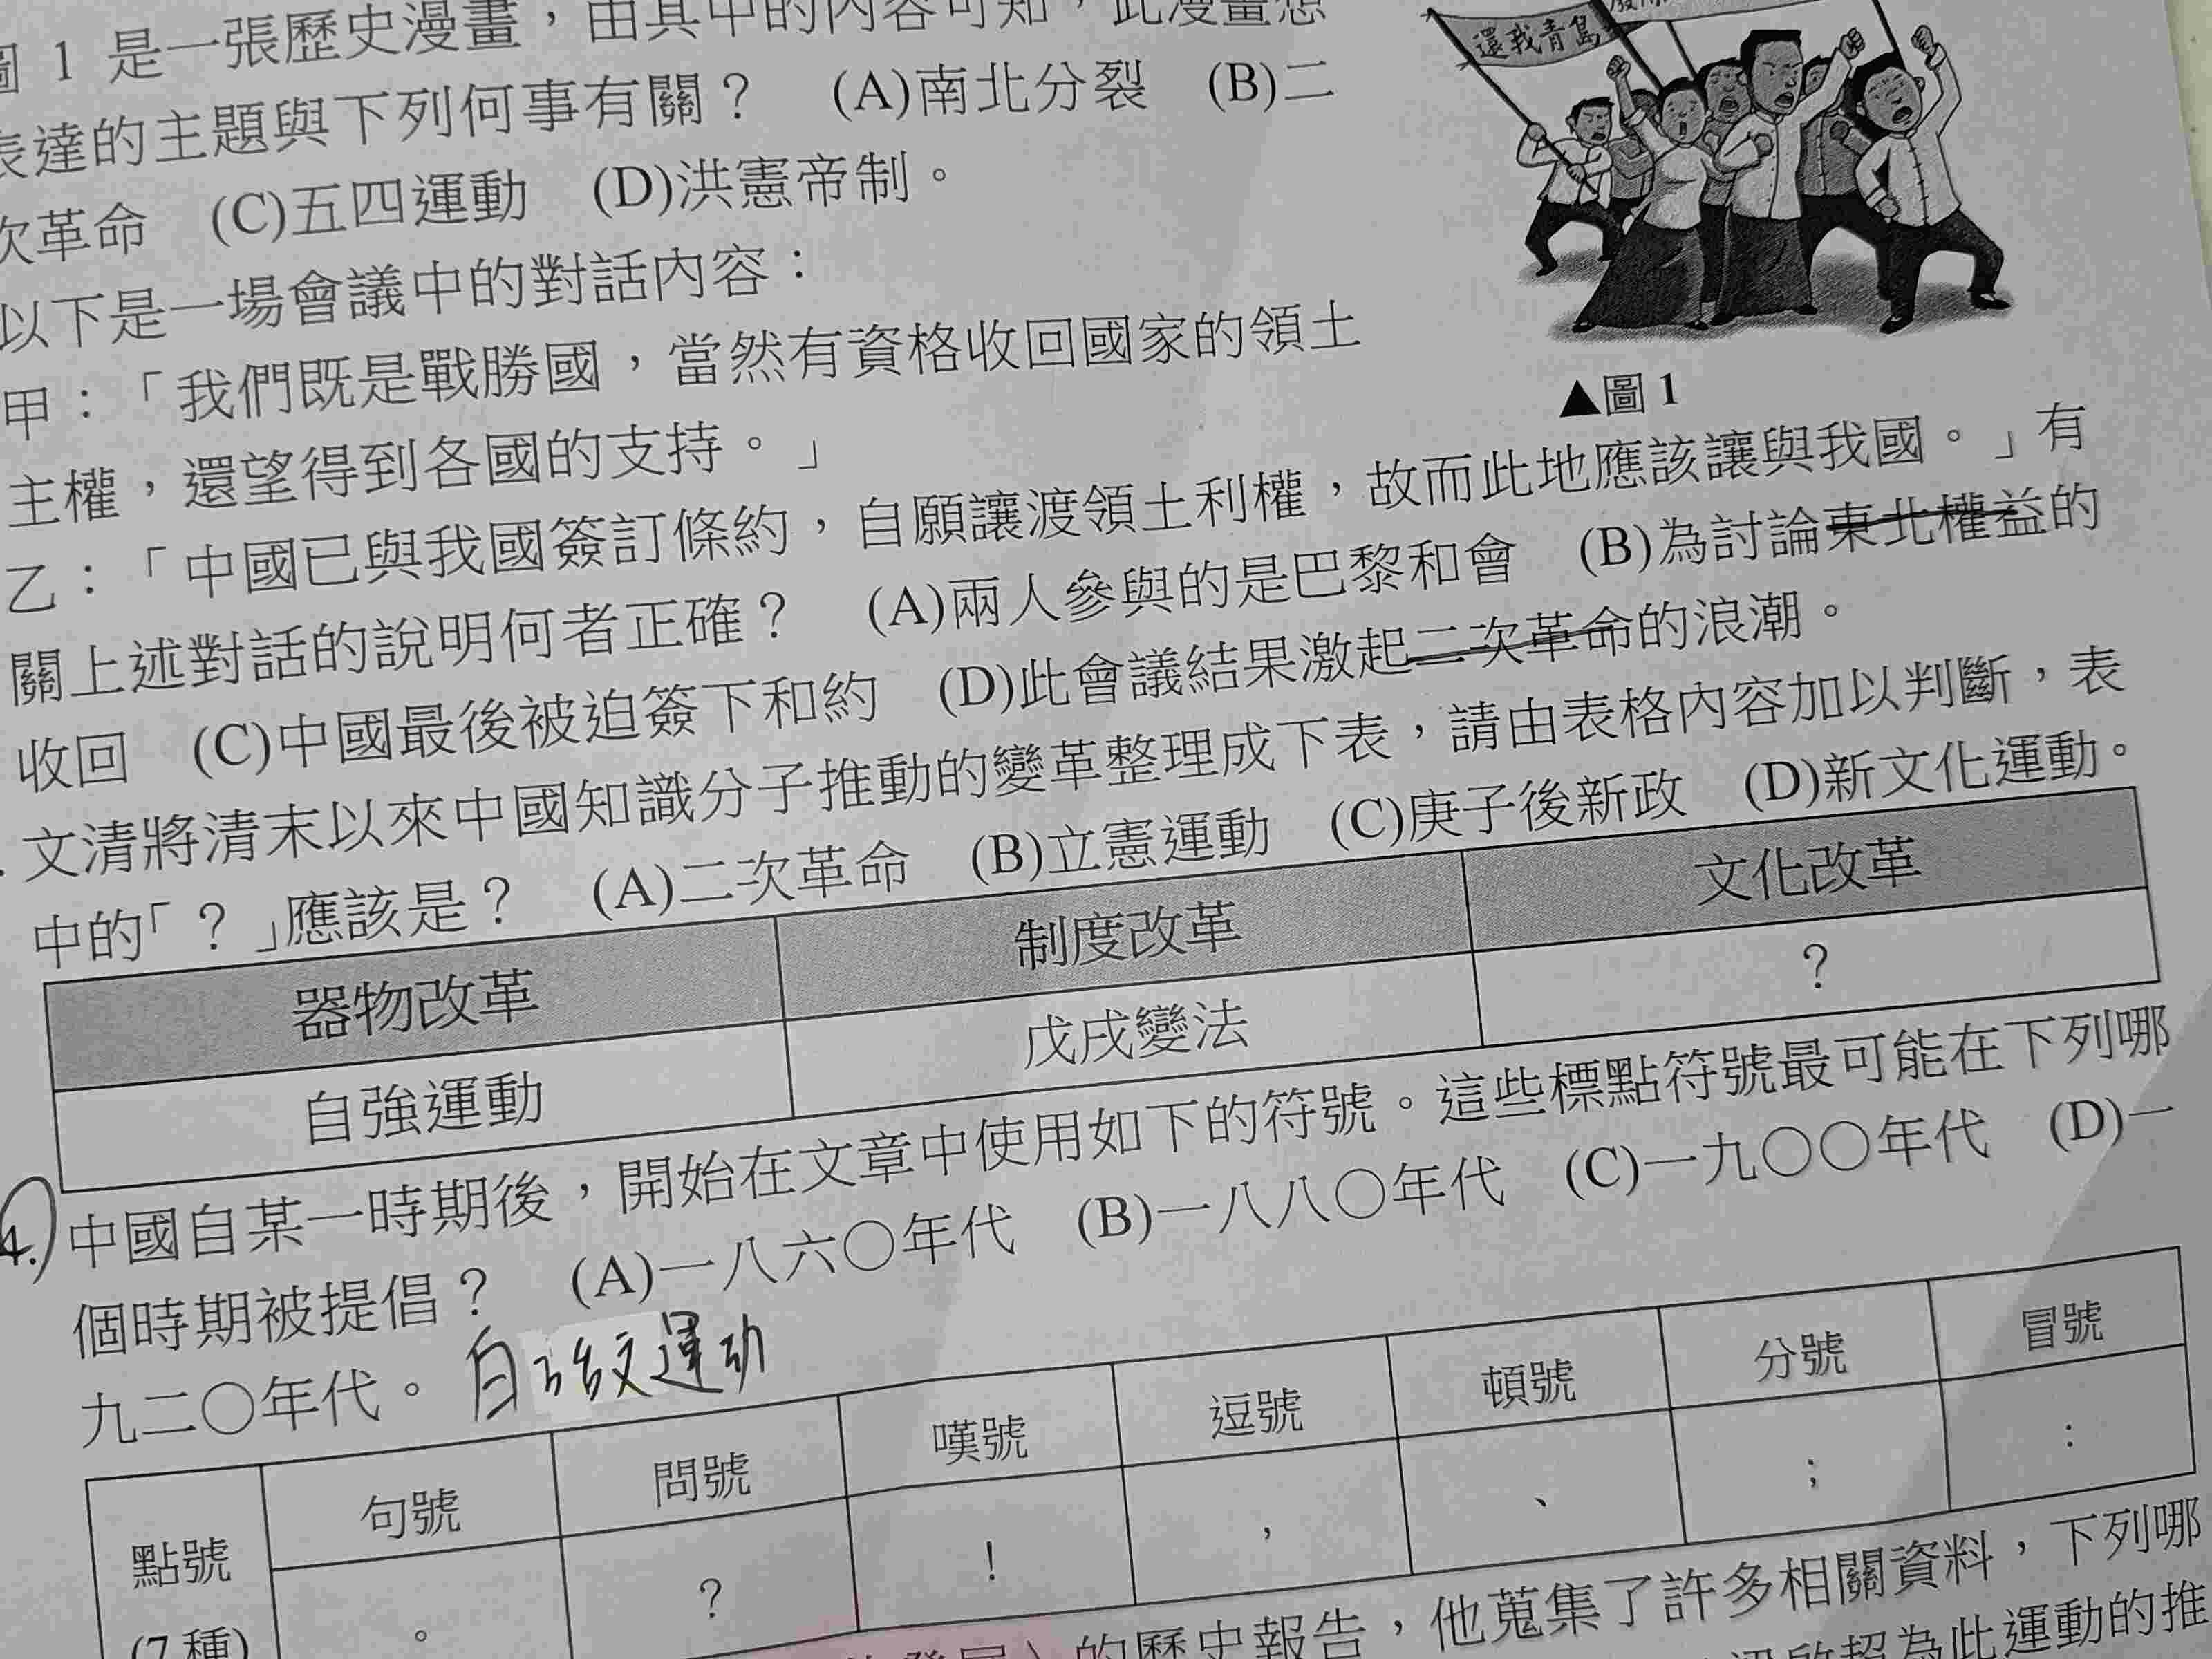 圖 1 是一張歷史漫畫，由其中的內容可知，此漫畫想
表達的主題與下列何事有關？ (A)南北分裂 (B)二
次革命 (C)五四運動 (D)洪憲帝制。
還我青島
▲圖 1
以下是一場會議中的對話內容：
甲：「我們既是戰勝國，當然有資格收回國家的領土
主權，還望得到各國的支持。」
乙：「中國已與我國簽訂條約，自願讓渡領土利權，故而此地應該讓與我國。」有
關上述對話的說明何者正確？ (A)兩人參與的是巴黎和會 (B)為討論東北權益的
收回 (C)中國最後被迫簽下和約 (D)此會議結果激起二次革命的浪潮。
. 文清將清末以來中國知識分子推動的變革整理成下表，請由表格內容加以判斷，表
中的「？」應該是？ (A)二次革命 (B)立憲運動 (C)庚子後新政 (D)新文化運動。
器物改革 制度改革 文化改革
自強運動 戊戌變法 ？
4. 中國自某一時期後，開始在文章中使用如下的符號。這些標點符號最可能在下列哪
個時期被提倡？ (A)一八六〇年代 (B)一八八〇年代 (C)一九〇〇年代 (D)一
九二〇年代。
點號 句號 問號 嘆號 逗號 頓號 分號 冒號
(7種) 。 ？ ！ ， 、 ； ：
的歷史報告，他蒐集了許多相關資料，下列哪
為此運動的推